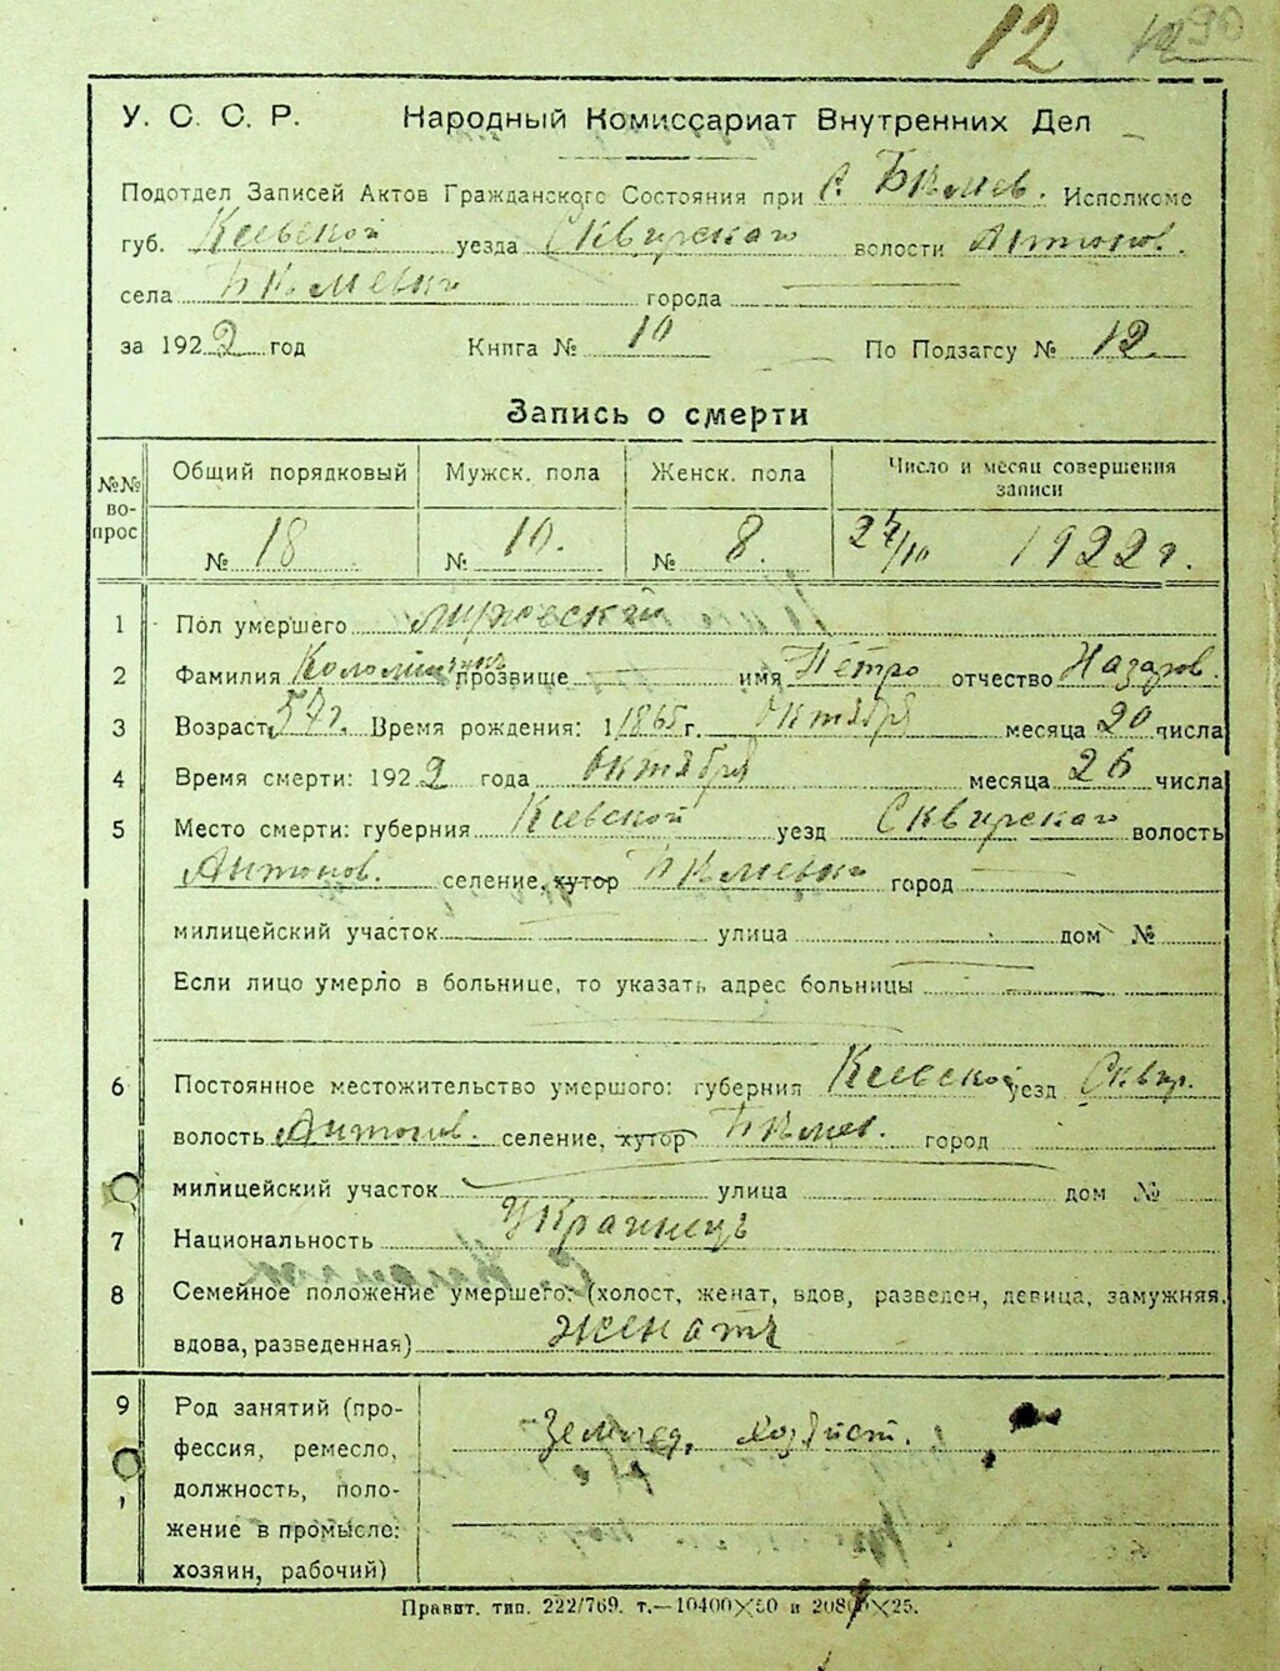 12
У. С. С. Р. Народный Комиссариат Внутренних Дел
Подотдел Записей Актов Гражданского Состояния при с. Исполкоме
губ. Киевской уезда Сквирскаго волости Антонов.
села города
за 1922 год Книга № 10 По Подзагсу № 12
Запись о смерти
№№ вопрос Общий порядковый Мужск. пола Женск. пола Число и месяц совершения записи
№ 18 № 10. № 8. 27/10 1922 г.
1 Пол умершего мужеский
2 Фамилия прозвище имя Петро отчество Назаров.
3 Возраст 57 г. Время рождения: 1 1865 г. Октября месяца 20 числа
4 Время смерти: 1922 года Октября месяца 26 числа
5 Место смерти: губерния Киевской уезд Сквирскаго волость
Антонов. селение, хутор город
милицейский участок улица дом №
Если лицо умерло в больнице, то указать адрес больницы
6 Постоянное местожительство умершого: губерния Киевской уезд Сквир.
волость Антонов. селение, хутор город
милицейский участок улица дом №
7 Национальность Украинець
8 Семейное положение умершего: (холост, женат, вдов, разведен, девица, замужняя,
вдова, разведенная) женатъ
9 Род занятий (про-
фессия, ремесло, Землед. хозяист.
должность, поло-
жение в промысле:
хозяин, рабочий)
Правит. тип. 222/769. т.—10400×50 и